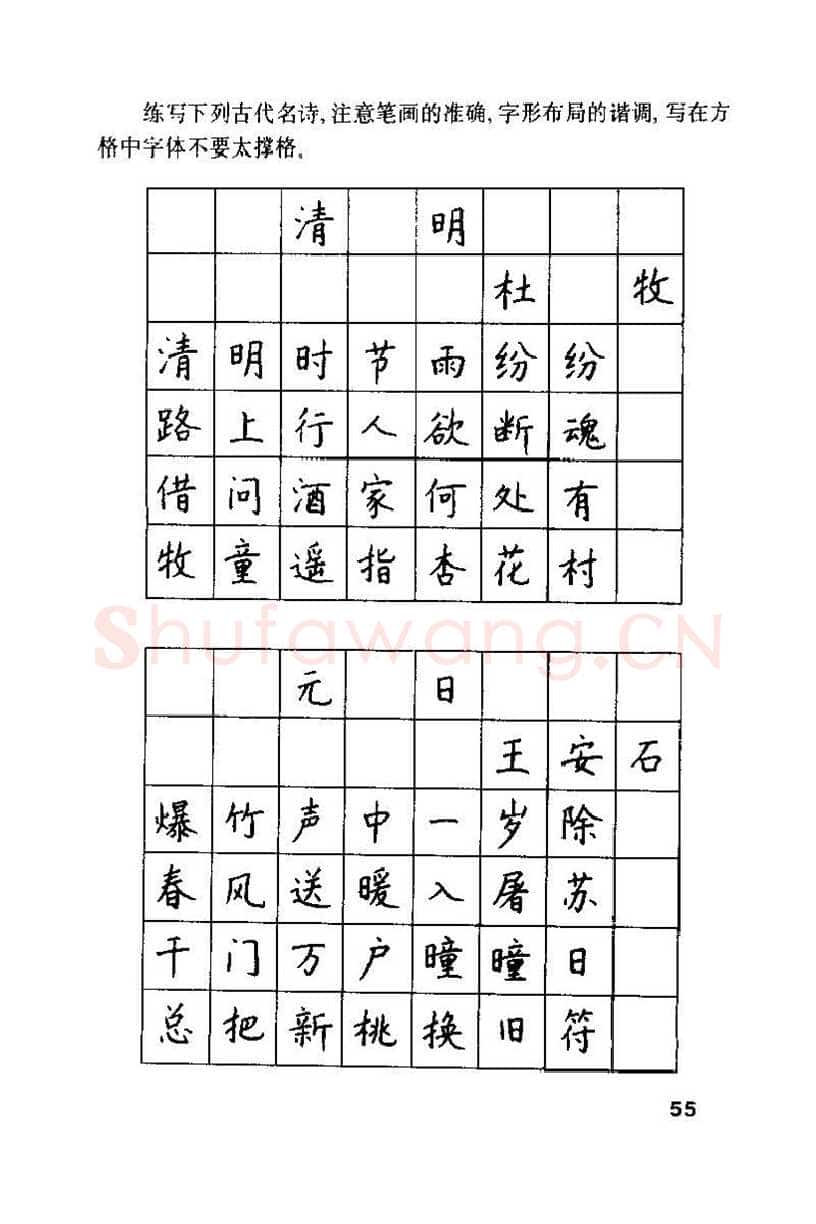 练写下列古代名诗,注意笔画的准确,字形布局的谐调,写在方
格中字体不要太撑格。
清明
杜牧
清明时节雨纷纷
路上行人欲断魂
借问酒家何处有
牧童遥指杏花村
shufawang.CN
元日
王安石
爆竹声中一岁除
春风送暖入屠苏
千门万户曈曈日
总把新桃换旧符
55